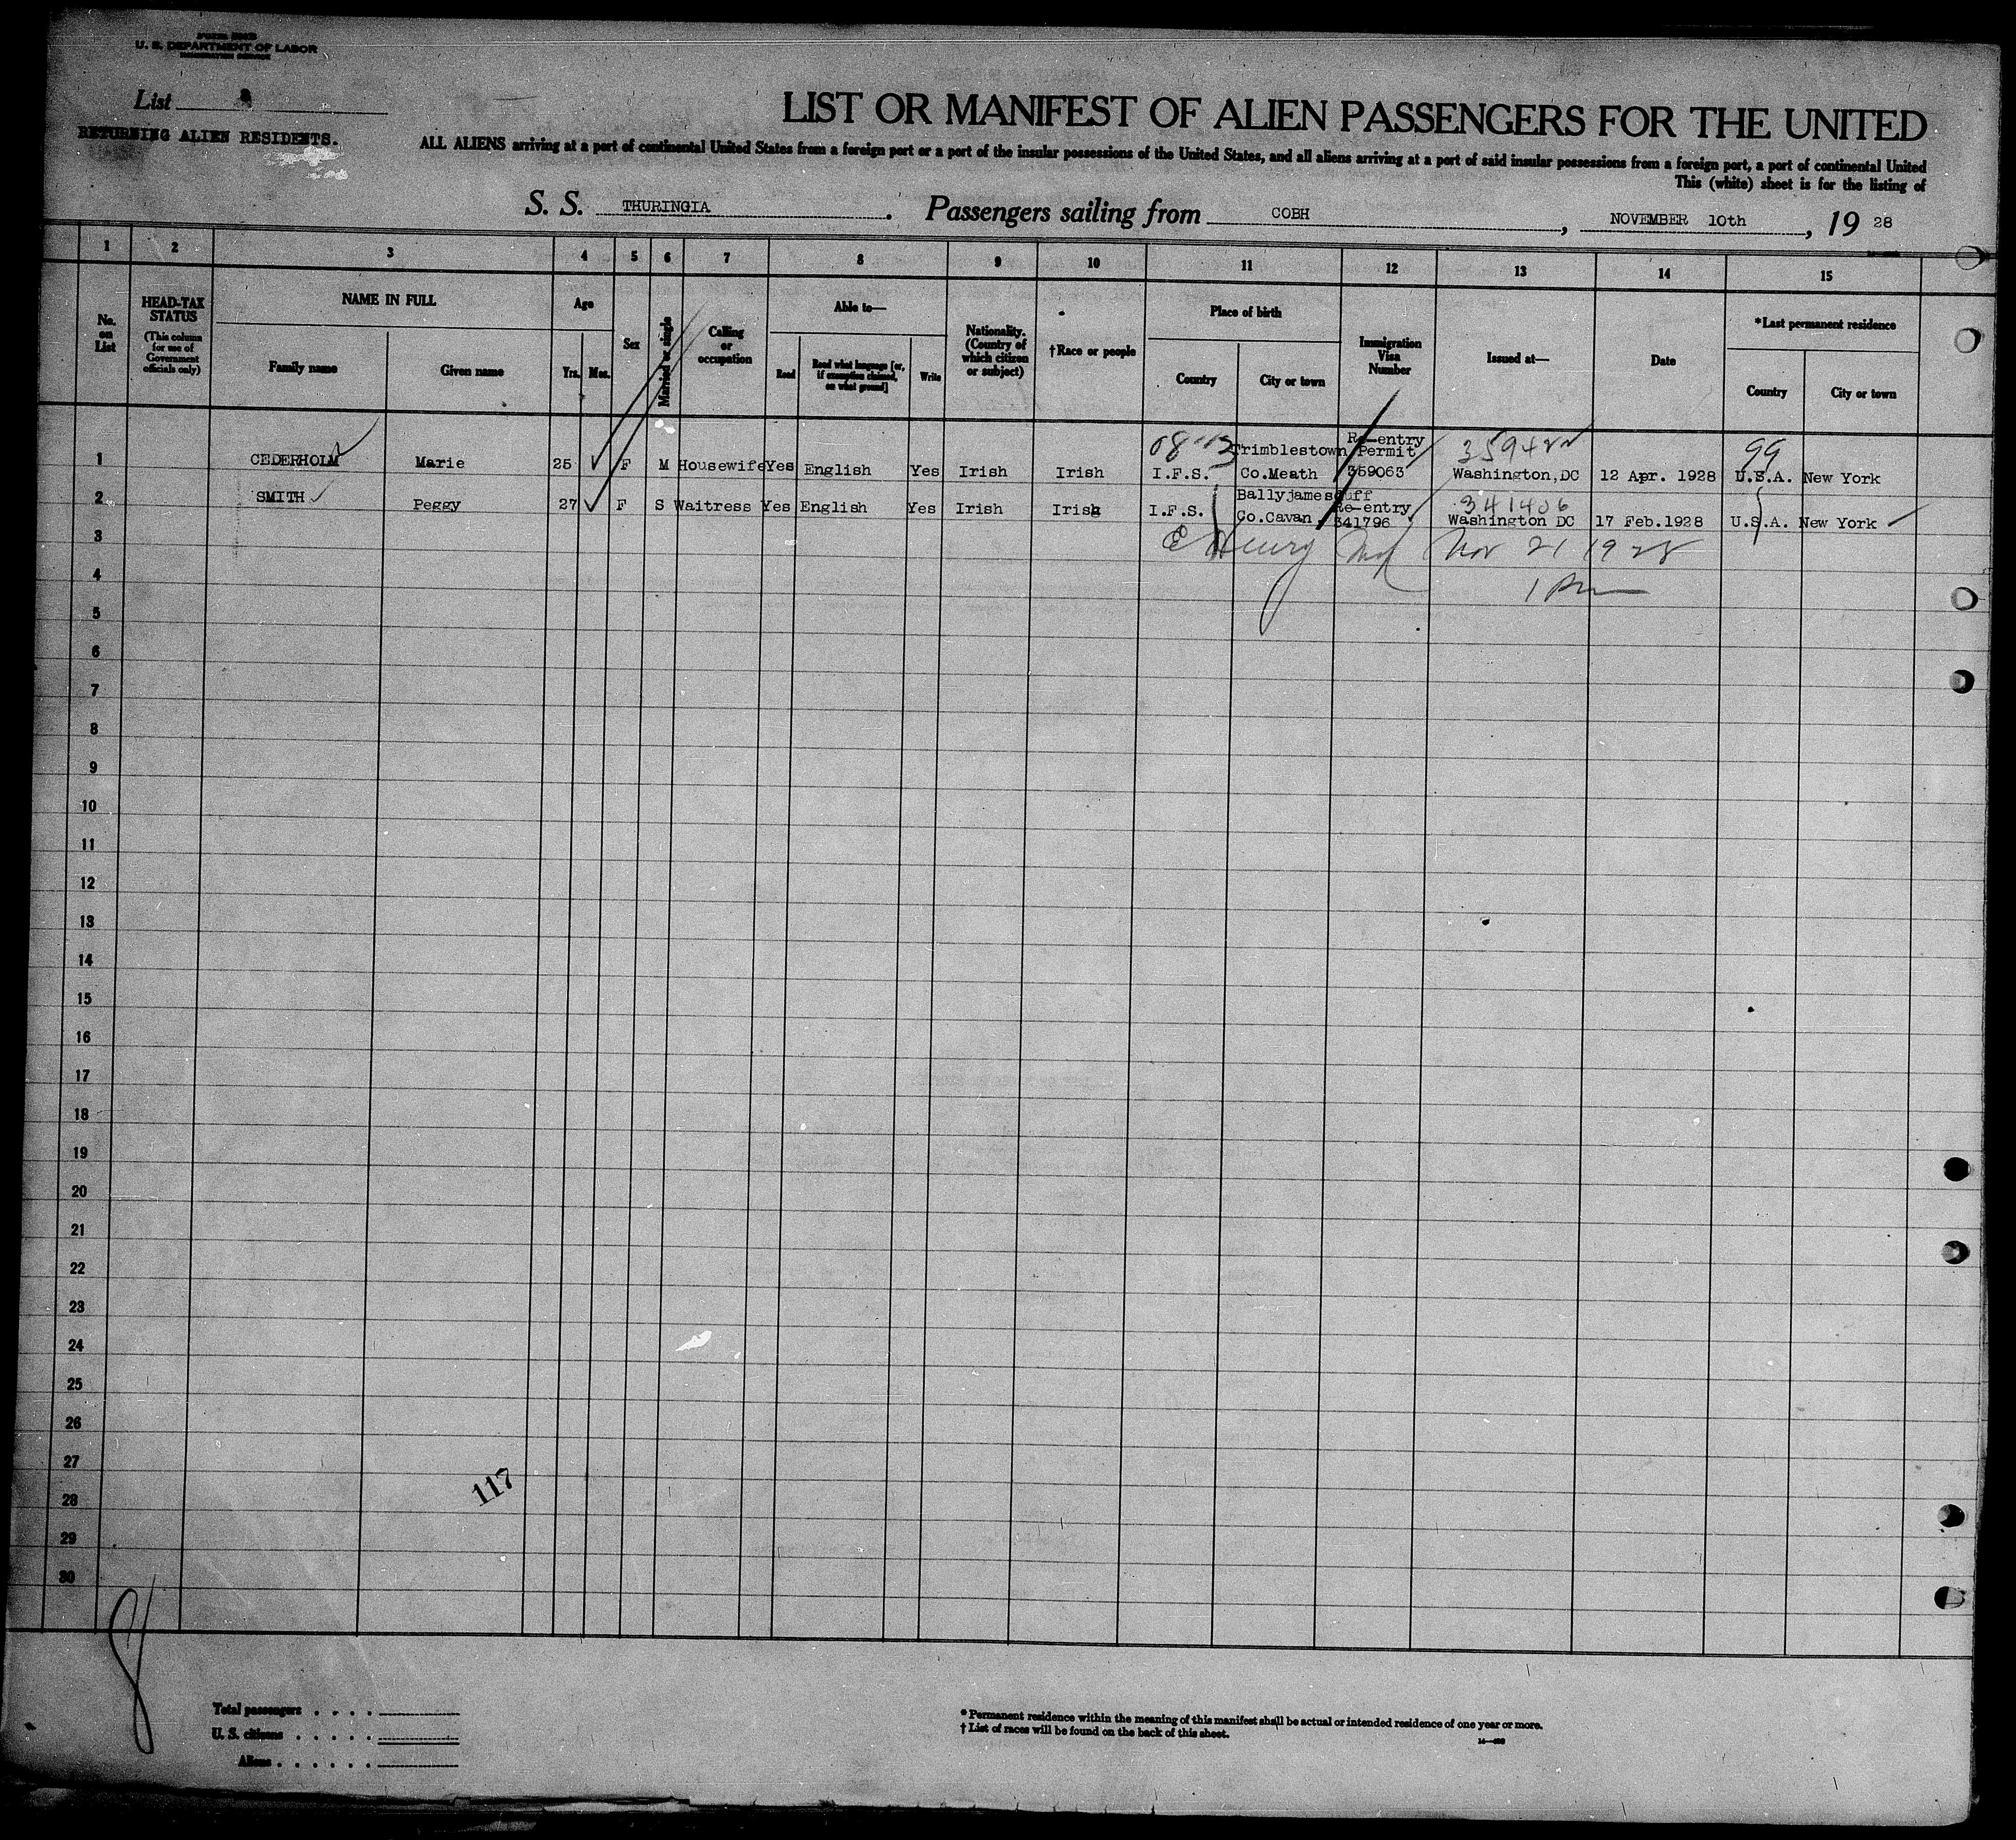 U. S. DEPARTMENT OF LABOR
List
RETURNING ALIEN RESIDENTS.
LIST OR MANIFEST OF ALIEN PASSENGERS FOR THE UNITED
ALL ALIENS arriving at a port of continental United States from a foreign port or a port of the insular possessions of the United States, and all aliens arriving at a port of said insular possessions from a foreign port, a port of continental United
This (white) sheet is for the listing of
S. S. THURINGIA. Passengers sailing from COBH, NOVEMBER 10th, 19 28
1 2 3 4 5 6 7 8 9 10 11 12 13 14 15
No. on List
HEAD-TAX STATUS
(This column for use of Government officials only)
NAME IN FULL
Family name
Given name
Age
Yrs. Mos.
Sex
Married or single
Calling or occupation
Able to—
Read
Read what language [or, if exemption claimed, on what ground]
Write
Nationality. (Country of which citizen or subject)
†Race or people
Place of birth
Country
City or town
Immigration Visa Number
Issued at—
Date
*Last permanent residence
Country
City or town
1 CEDERHOLM Marie 25 F M Housewife Yes English Yes Irish Irish I.F.S. Trimblestown Co.Meath Re-entry Permit 359063 Washington,DC 12 Apr. 1928 U.S.A. New York
99
2 SMITH Peggy 27 F S Waitress Yes English Yes Irish Irish I.F.S. Ballyjamesduff Co.Cavan Re-entry 341796 Washington DC 17 Feb.1928 U.S.A. New York
341406
3
Nov 21 1928
4
1 Pm
5
6
7
8
9
10
11
12
13
14
15
16
17
18
19
20
21
22
23
24
25
26
27
117
28
29
30
Total passengers . . . .
U. S. citizens . . . . .
Aliens . . . . . .
* Permanent residence within the meaning of this manifest shall be actual or intended residence of one year or more.
† List of races will be found on the back of this sheet.